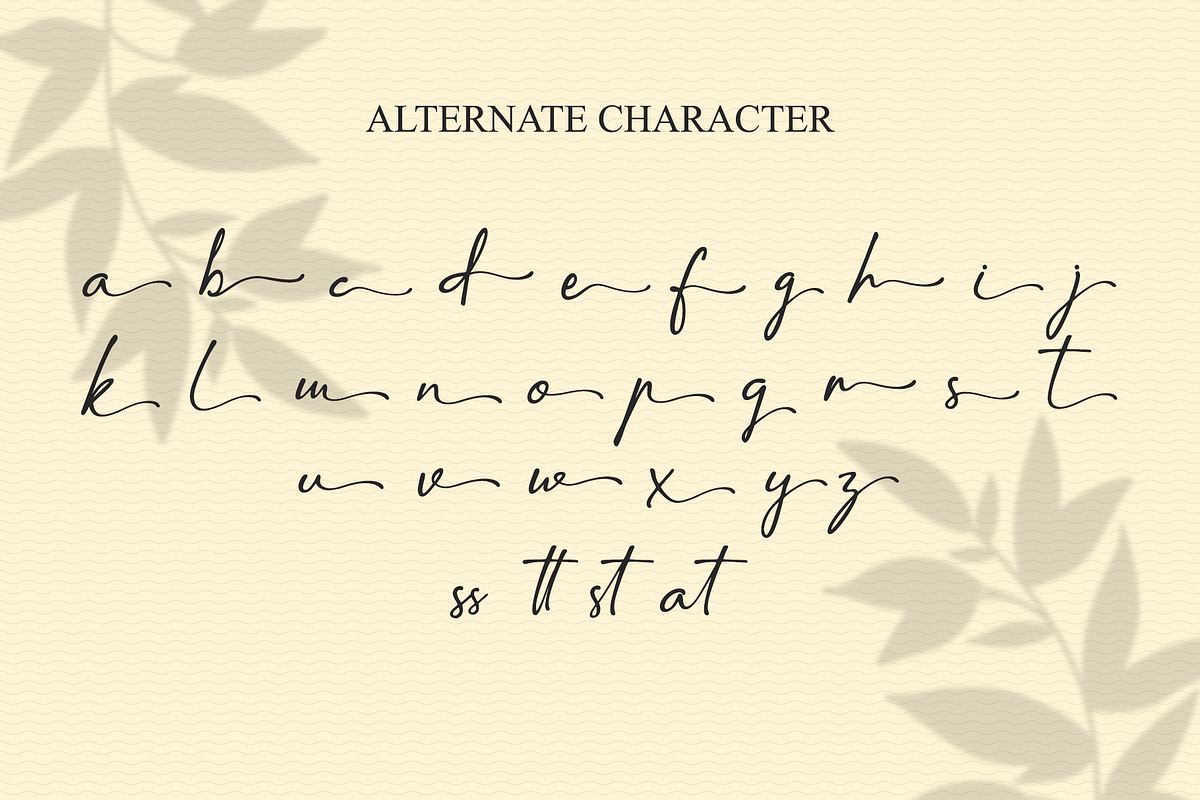 ALTERNATE CHARACTER
a b c d e f g h i j
k l m n o p q r s t
u v w x y z
ss tt st at